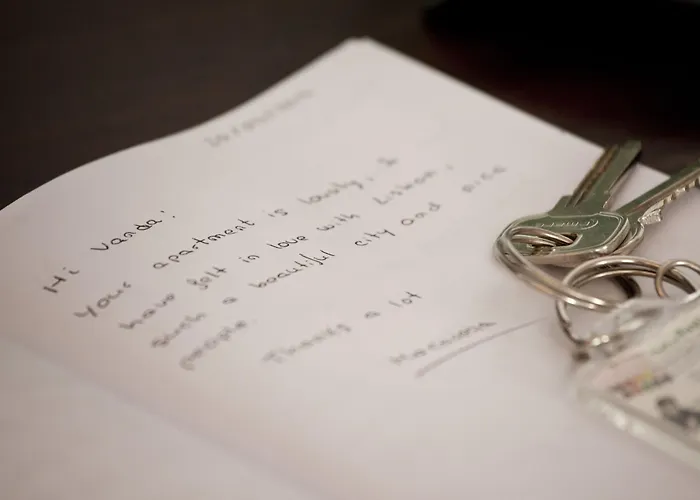 Hi Vanda!
Your apartment is lovely, I
have felt in love with Lisbon,
such a beautiful city and nice
people.
Thank's a lot